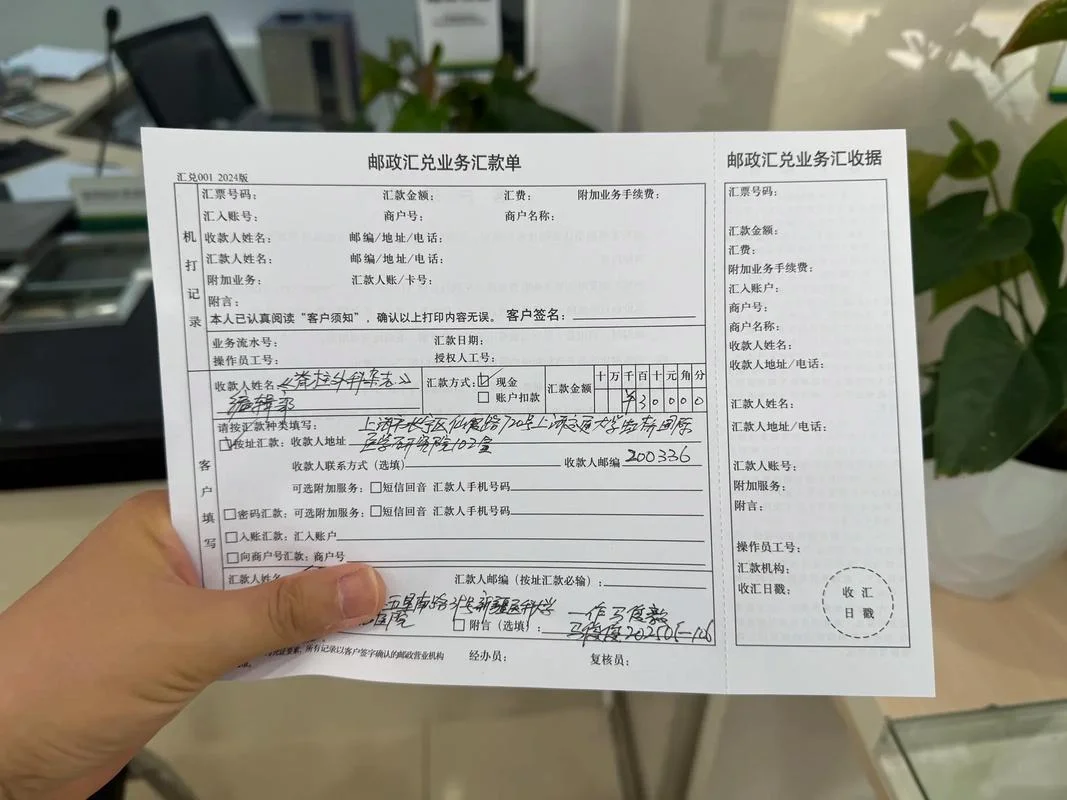 邮政汇兑业务汇款单
汇兑001 2024版
机打记录
汇票号码： 汇款金额： 汇费： 附加业务手续费：
汇入账号： 商户号： 商户名称：
收款人姓名： 邮编/地址/电话：
汇款人姓名： 邮编/地址/电话：
附加业务： 汇款人账/卡号：
附言：
本人已认真阅读“客户须知”，确认以上打印内容无误。 客户签名：
业务流水号： 汇款日期：
操作员工号： 授权人工号：
客户填写
收款人姓名：《脊柱外科杂志》
编辑部
汇款方式：☑现金
□账户扣款
汇款金额
十万千百十元角分
¥30000
请按汇款种类填写： 上海市长宁区仙霞路720号上海交通大学 国际
☑按址汇款：收款人地址 医学研究院102室
收款人联系方式（选填） 收款人邮编 200336
可选附加服务：□短信回音 汇款人手机号码
□密码汇款：可选附加服务：□短信回音 汇款人手机号码
□入账汇款：汇入账户
□向商户号汇款：商户号
汇款人姓名 汇款人邮编（按址汇款必输）：
南路 新疆医科大学 一作
□附言（选填）：
所有记录以客户签字确认的邮政营业机构 经办员： 复核员：
邮政汇兑业务汇收据
汇票号码：
汇款金额：
汇费：
附加业务手续费：
汇入账户：
商户号：
商户名称：
收款人姓名：
收款人地址/电话：
汇款人姓名：
汇款人地址/电话：
汇款人账号：
附加服务：
附言：
操作员工号：
汇款机构：
收汇日戳：
收汇
日戳